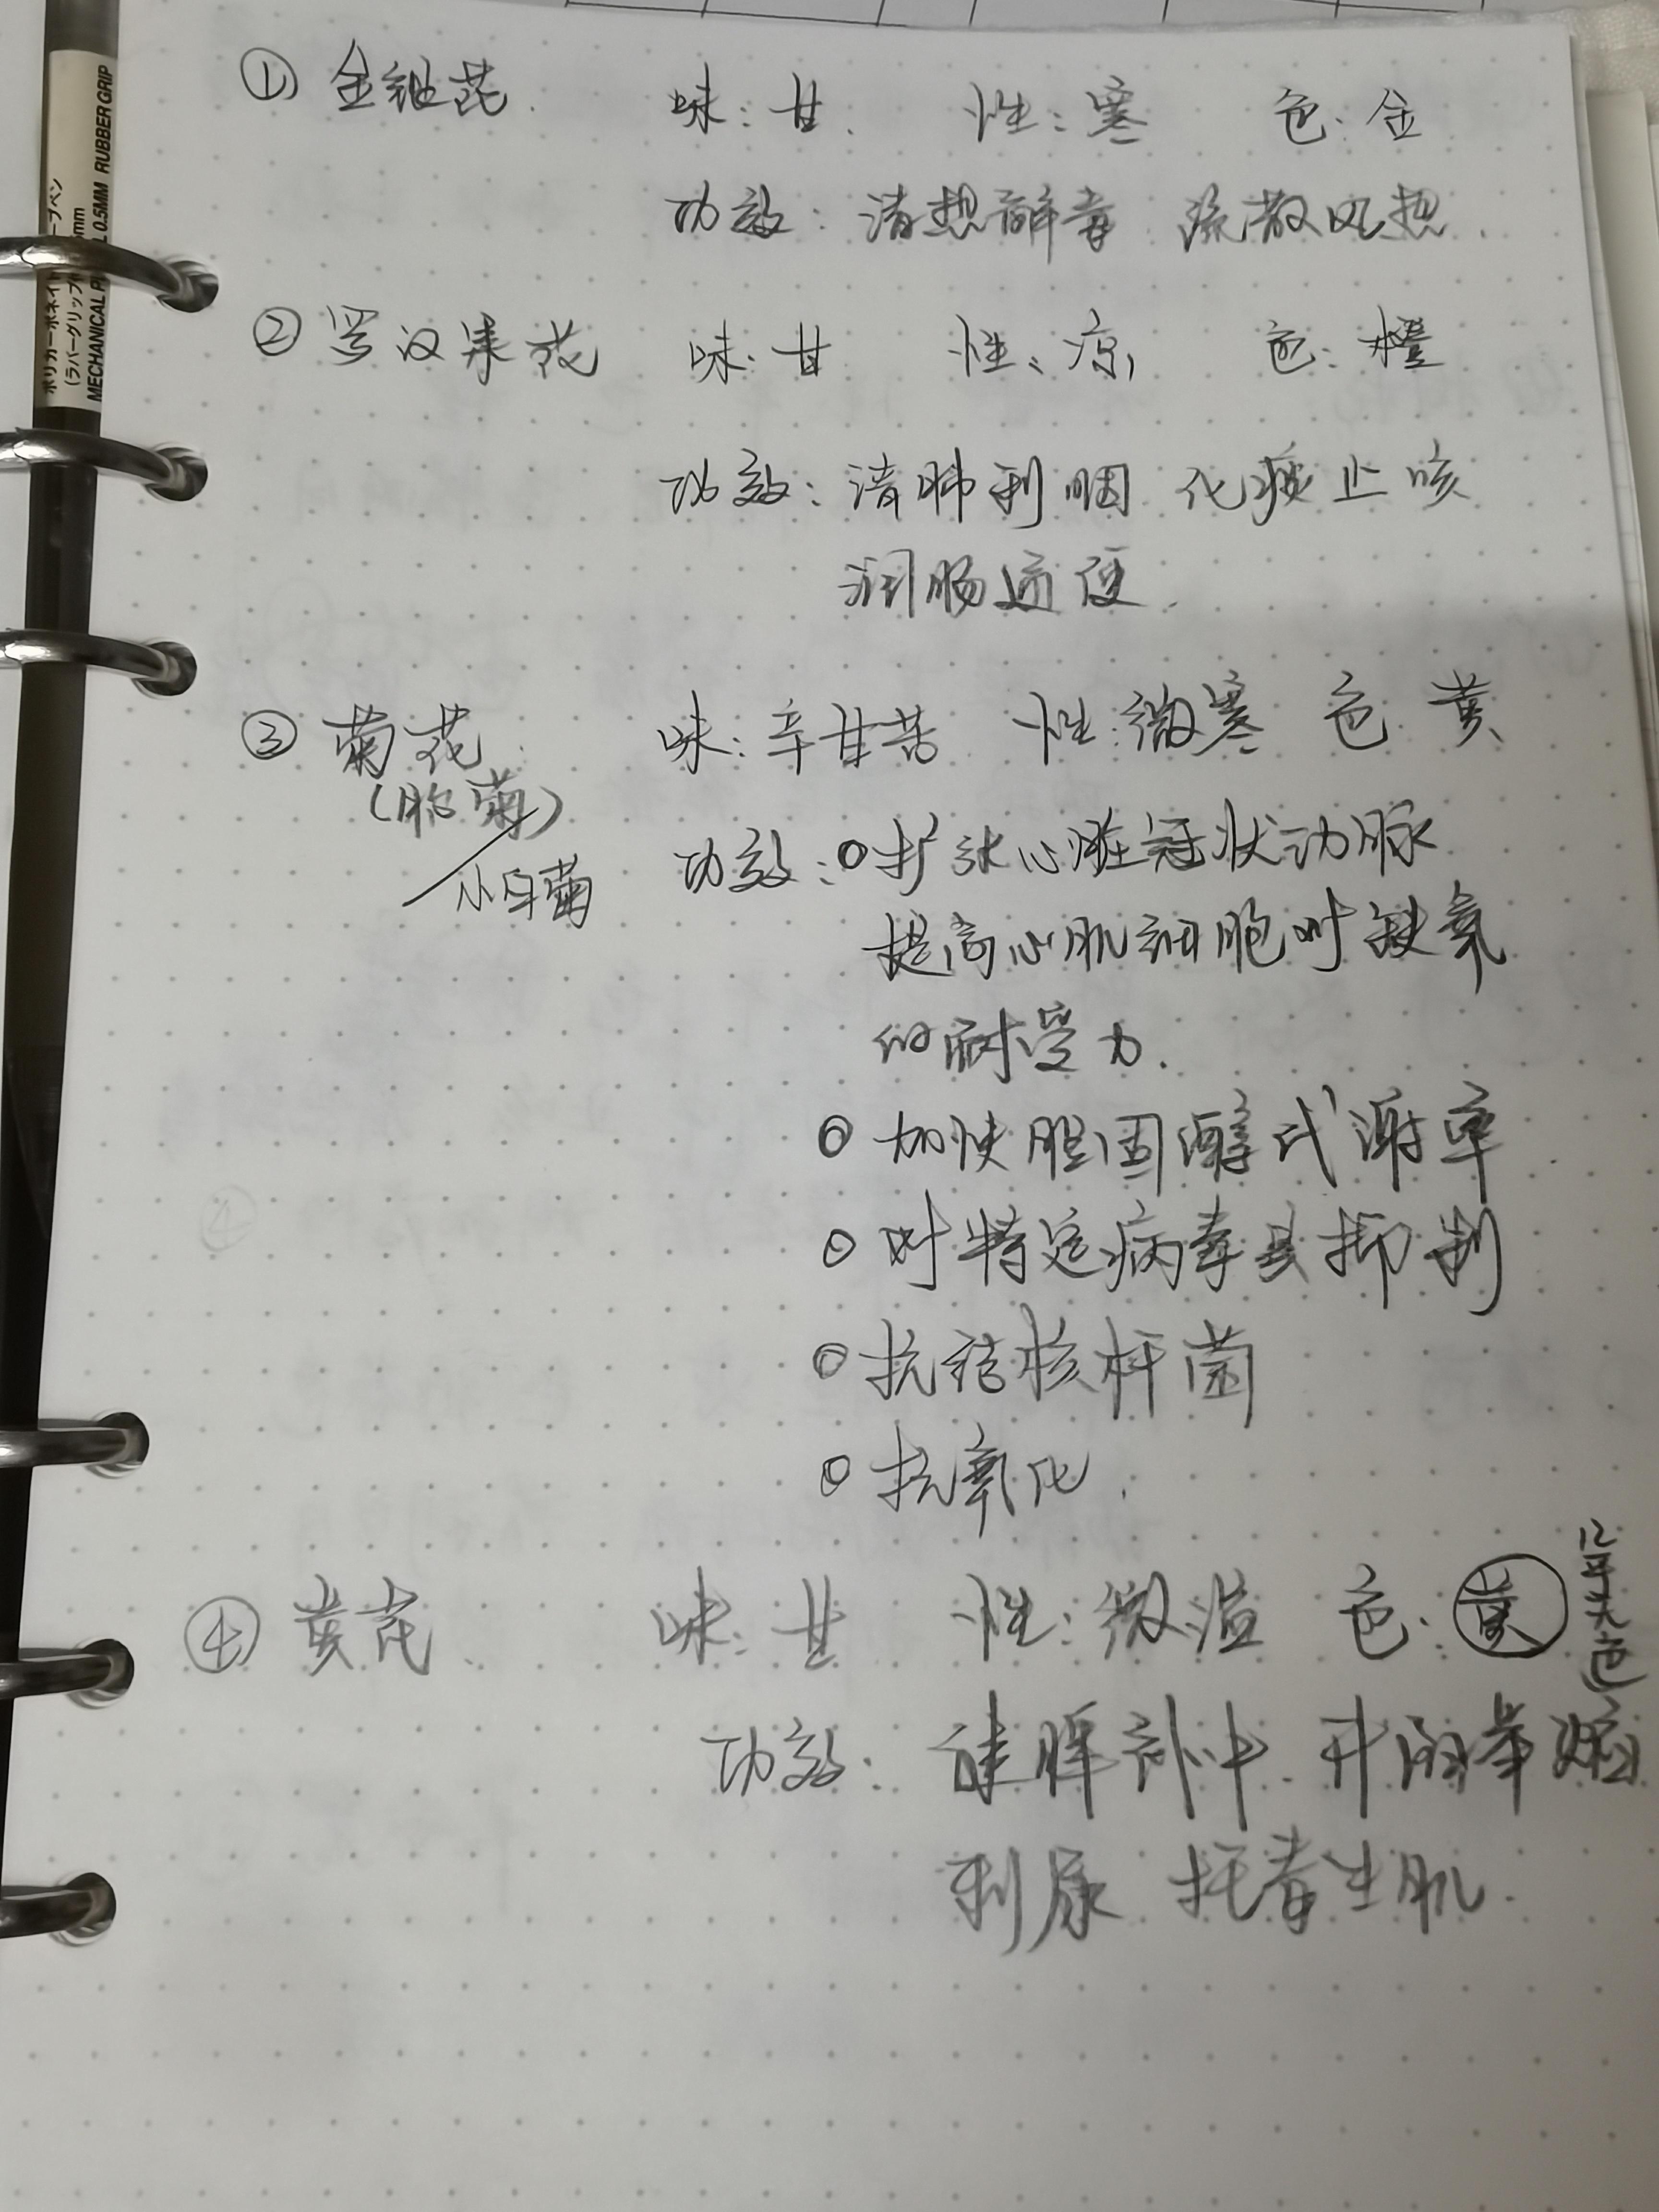 ① 金银花 味:甘 性:寒 色:金
功效:清热解毒 疏散风热
② 罗汉果花 味:甘 性:凉 色:橙
功效:清肺利咽 化痰止咳
润肠通便
③ 菊花 味:辛甘苦 性:微寒 色 黄
(胎菊)
小白菊
功效:扩张心脏冠状动脉
提高心肌细胞对缺氧
的耐受力.
加快胆固醇代谢率
对特定病毒具抑制
抗结核杆菌
抗氧化.
④ 黄芪 味:甘 性:微温 色:黄
几乎无色
功效: 健脾补中 升阳举陷
利尿 托毒生肌.
ポリカーボネイト
(ラバーグリップ
MECHANICAL 0.5MM RUBBER GRIP